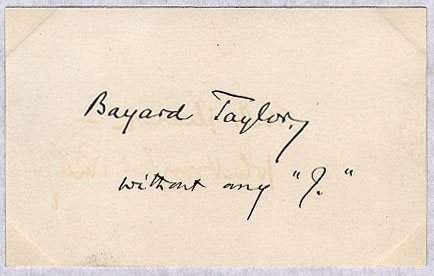 Bayard Taylor,
without any "J."